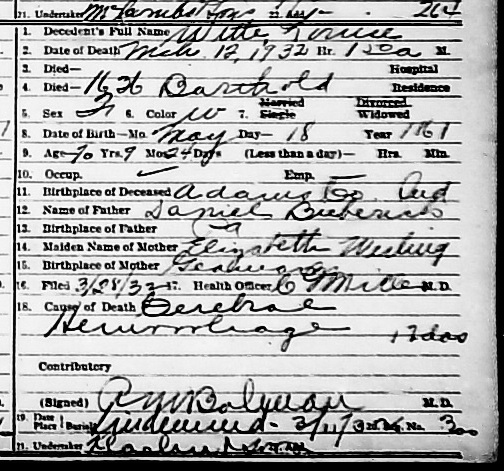 21. Undertaker McComb & Sons 22. 264
1. Decedent's Full Name Witte Louise
2. Date of Death Mch. 12, 1932 Hr. 120a M.
3. Died— Hospital
4. Died— 1636 Barthold Residence
5. Sex F 6. Color W 7. Married Single Divorced Widowed
8. Date of Birth—Mo. May Day— 18 Year 1861
9. Age 70 Yrs. 9 Mos 24 Days (Less than a day)— Hrs. Min.
10. Occup. ✓ Emp. —
11. Birthplace of Deceased Adams Co. Ind
12. Name of Father Daniel
13. Birthplace of Father
14. Maiden Name of Mother Elizabeth
15. Birthplace of Mother Germany
16. Filed 3/28/32 17. Health Officer M.D.
18. Cause of Death Cerebral
Hemorrhage 12 das
Contributory
(Signed) M.D.
19. Date Place Burial Lindenwood - No. 300
21. Undertaker